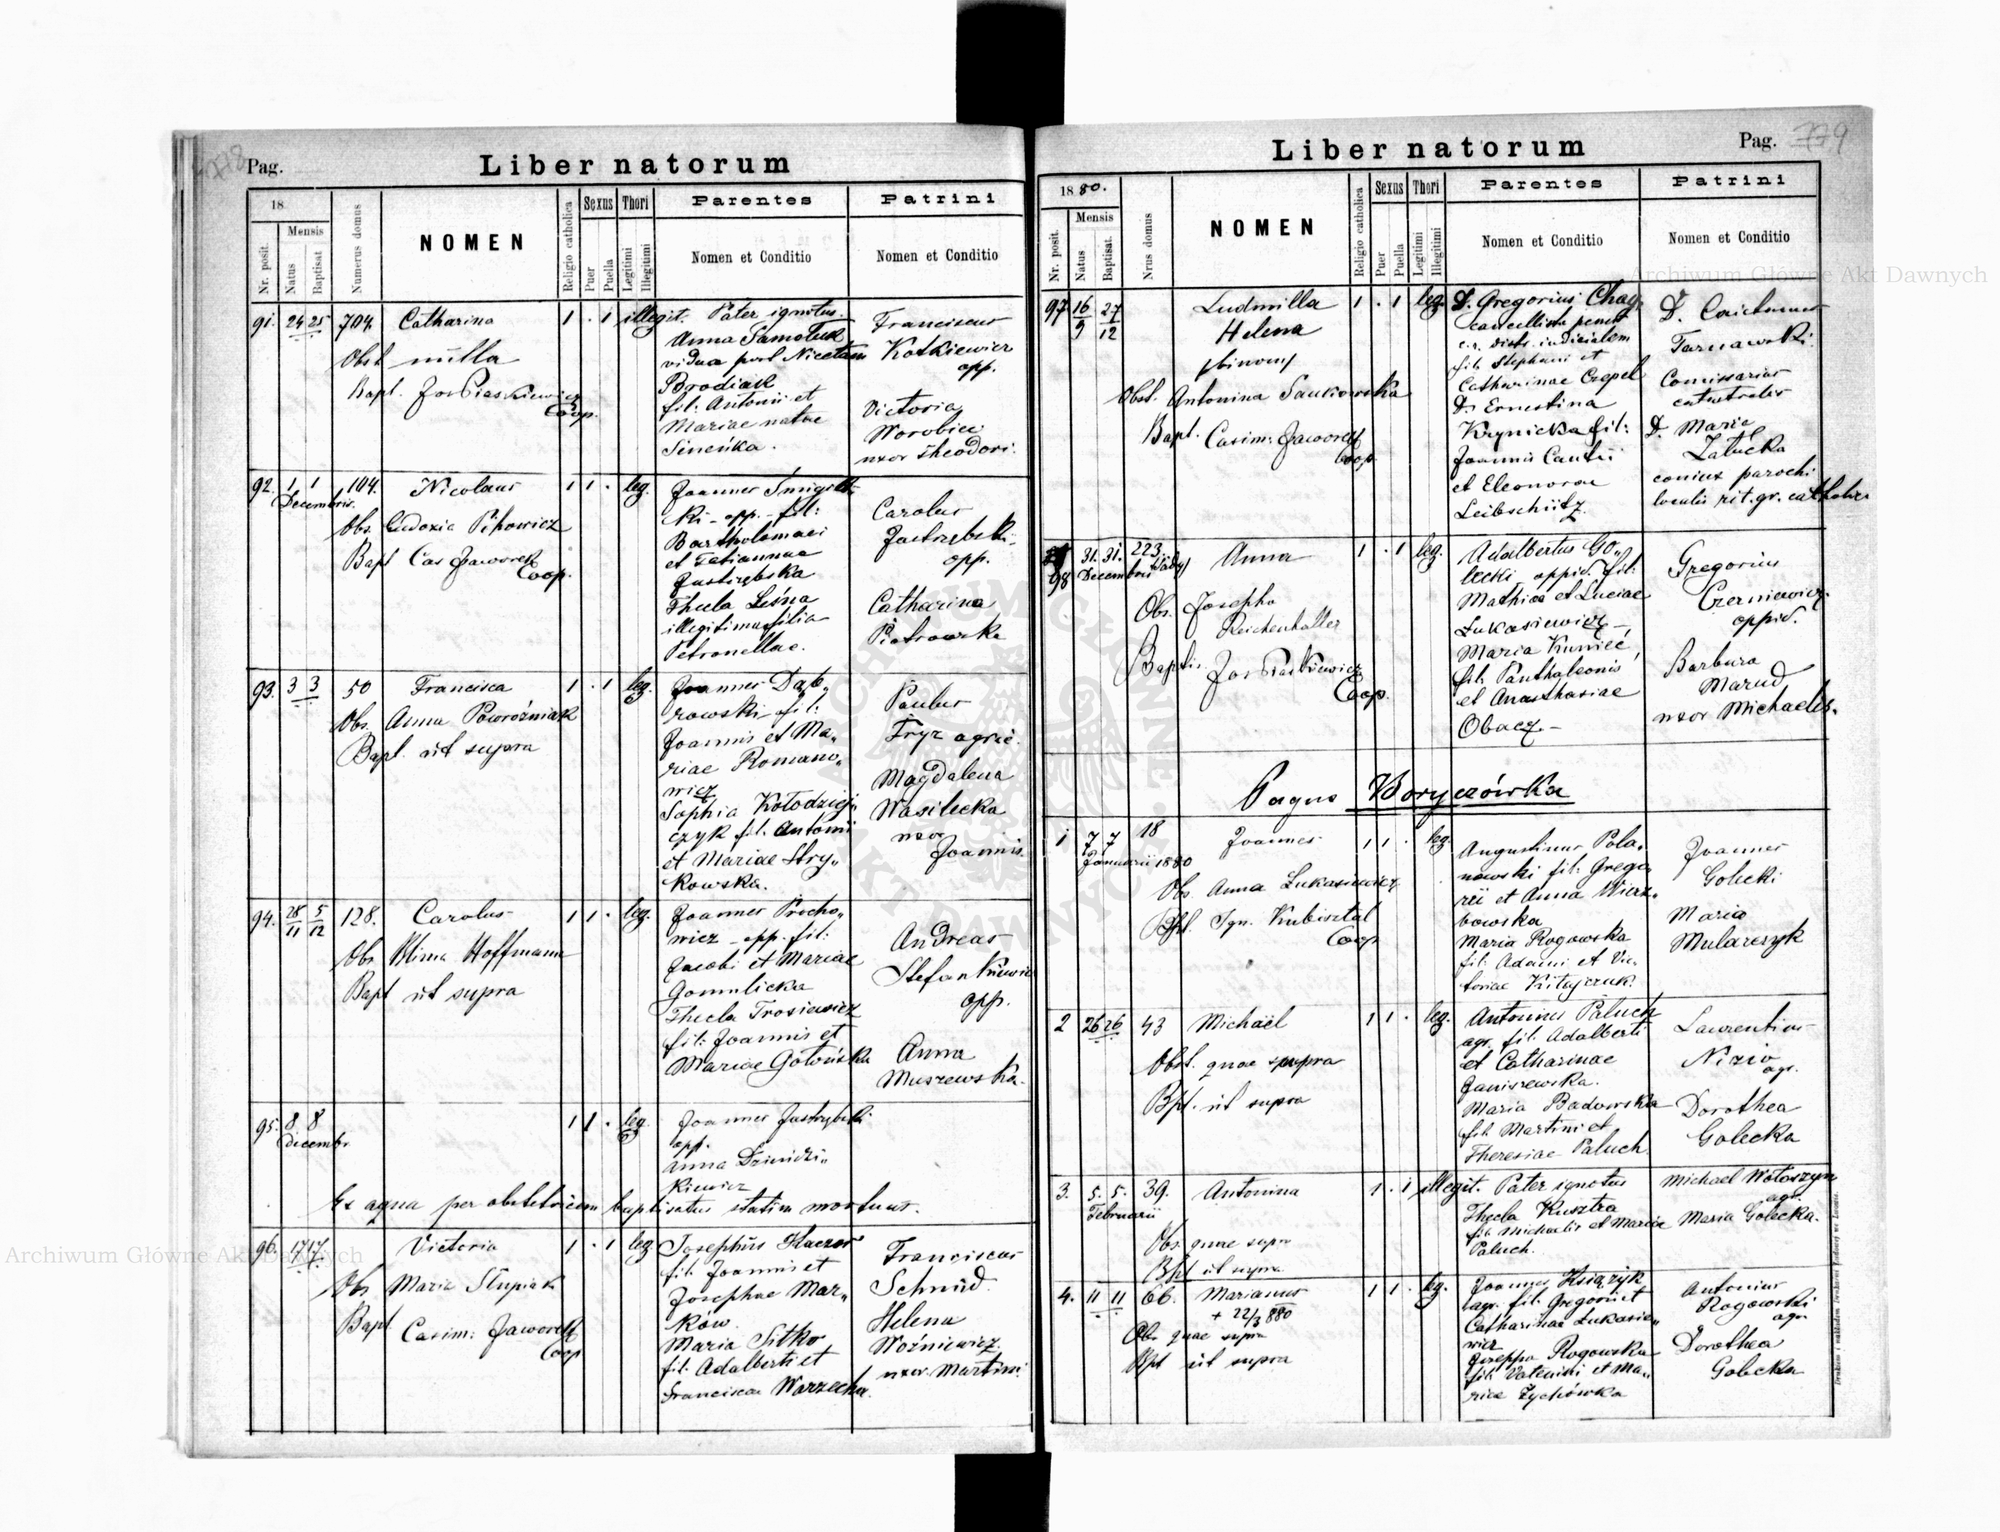 Pag.
Liber natorum
18
Nr. posit.
Mensis
Natus
Baptisat
Numerus domus
NOMEN
Religio catholica
Sexus
Puer
Puella
Thori
Legitimi
Illegitimi
Parentes
Nomen et Conditio
Patrini
Nomen et Conditio
91. 24 25 704. Catharina 1 . 1 illegit. Pater ignotus.
Obst nulla
Bapt.
Coop.
Anna
vidua post
Brodiak
fil: Antonii et
Mariae natae
Franciscus
Kotkiewicz
opp.
Victoria
uxor Theodori.
92. 1 1 104. Nicolaus 1 1 . leg.
Decembris.
Obs. Eudoxia
Bapt Cas Jaworek
Coop.
Joannes
ki - opp. - fil:
Bartholomaei
et Tatiannae
Jastrzębska
Thecla Leśna
illegitima filia
Petronellae.
Carolus
Jastrzębski
opp.
Catharina
Piotrowska
93. 3 3 50 Francisca 1 . 1 leg.
Obs. Anna Powroźniak
Bapt. ut supra
Joannes Dąb„
rowski fil:
Joannis et Ma„
riae Romano„
wicz
Sophia Kołodziej„
czyk fil. Antonii
et Mariae Stry„
kowska.
Paulus
Fryz agric.
Magdalena
Wasilecka
uxor
Joannis.
94. 28/11 5/12 128. Carolus 1 1 . leg.
Obs Klima Hoffmann
Bapt ut supra
Joannes Procho„
wicz - opp. fil:
Jacobi et Mariae
Gomulicka
Thecla Trosiewicz
fil: Joannis et
Mariae
Andreas
Stefankiewicz
opp.
Anna
Muszewska.
95. 8 8 1 1 . leg.
Decembr.
Joannes Jastrzębski
opp.
Anna
kiewicz
Ex aqua per obstetricem baptisatus statim mortuus.
96. 17 17. Victoria 1 . 1 leg
Obs. Maria Słupiak
Bapt Casim: Jaworek
Coop
Josephus Kaczor
fil. Joannis et
Josephae Mar„
ków.
Maria Sitko
fil. Adalberti et
Franciscae Warzecha.
Franciscus
Schmid.
Helena
Woźniewicz
uxor. Martini.
Liber natorum
Pag. 779
1880.
Nr. posit.
Mensis
Natus
Baptisat.
Nrus domus
NOMEN
Religio catholica
Sexus
Puer
Puella
Thori
Legitimi
Illegitimi
Parentes
Nomen et Conditio
Patrini
Nomen et Conditio
97. 16/9 27/12 Ludmilla 1 . 1 leg.
Helena
/binom/
Obst. Antonina Sankowska
Bapt. Casim: Jaworek
Coop
D. Gregorius
cancellista penes
c.r. distr. iudicialem
fil. Stephani et
Catharinae Czepel
D. Ernestina
Krynicka fil:
Joannis Cantii
et Eleonorae
Leibschütz.
D.
Tarnawski.
Comissarius
catastralis
D. Marie
Załucka
coniux parochi
localis rit. gr. catholici
98 31. 31. 223 Anna 1 . 1 leg.
Decembris
Obs. Josepha
Reichenhalter
Baptis. Jos Piaskiewicz
Coop.
Adalbertus Go„
lecki oppid. fil:
Mathiae et Luciae
Łukasiewicz -
Maria
fil. Panthaleonis
et Anasthasiae
Obacz. -
Gregorius
Czerniewicz
oppid.
Barbara
Marud
uxor Michaelis.
Pagus Boryczówka
1 7 7 18 Joannes 1 1 . leg.
Januarii 1880
Obs. Anna Łukasiewicz
Bpt. Ign. Kubisztal
Coop
Augustinus Pola„
nowski fil: Grego„
rii et Anna Wierz„
bowska
Maria Rogowska
fil. Adami et Vic„
toriae Kitajczuk.
Joannes
Golecki
Maria
Mularczyk
2 26 26 43 Michaël 1 1 . leg.
Obst. quae supra
Bpt. ut supra
Antonius Paluch
agr. fil. Adalberti
et Catharinae
Janiszewska.
Maria Badowska
fil. Martini et
Theresiae Paluch.
Laurentius
Nizio
agr.
Dorothea
Golecka
3. 5. 5. 39. Antonina 1 . 1 illegit. Pater ignotus
Februarii
Obs. quae supra
Bpt ut supra
Thecla Kusztra
fil. Michaelis et Mariae
Paluch.
Michael Wołoszyn
agr.
Maria Golecka.
4. 11 11 66. Marianus 1 1 . leg.
+ 22/3 880
Obs. quae supra
Bpt ut supra
Joannes Książyk
agr. fil. Gregorii et
Catharinae Łukasie„
wicz
Josepha Rogowska
fil. Valentini et Ma„
riae Zychówka
Antonius
Rogowski
agr
Dorothea
Golecka
Archiwum Główne Akt Dawnych
Archiwum Główne Akt Dawnych
ARCHIWUM GŁÓWNE AKT DAWNYCH